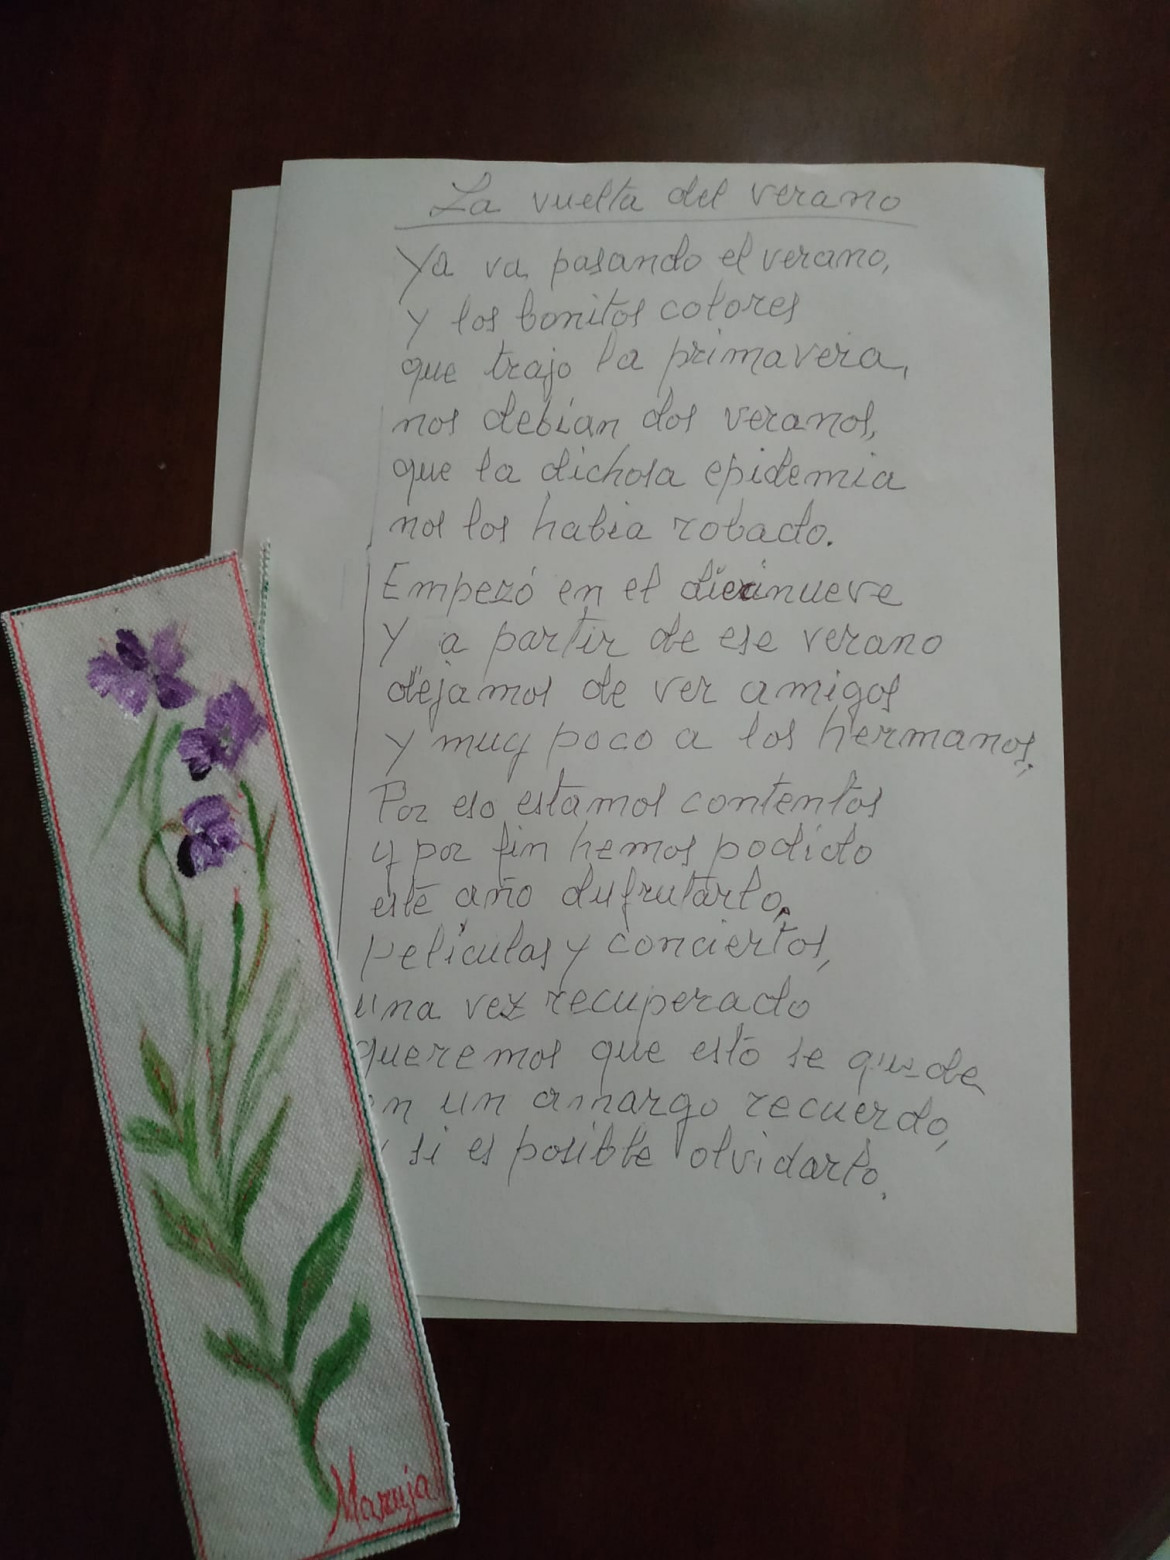 La vuelta del verano
Ya va pasando el verano,
y los bonitos colores
que trajo la primavera,
nos debían dos veranos,
que la dichosa epidemia
nos los habia robado.
Empezó en el diecinueve
Y a partir de ese verano
dejamos de ver amigos
y muy poco a los hermanos,
Por eso estamos contentos
y por fin hemos podido
este año disfrutarlo,
peliculas y conciertos,
una vez recuperado
queremos que esto se quede
en un amargo recuerdo,
y si es posible olvidarlo.
Maruja